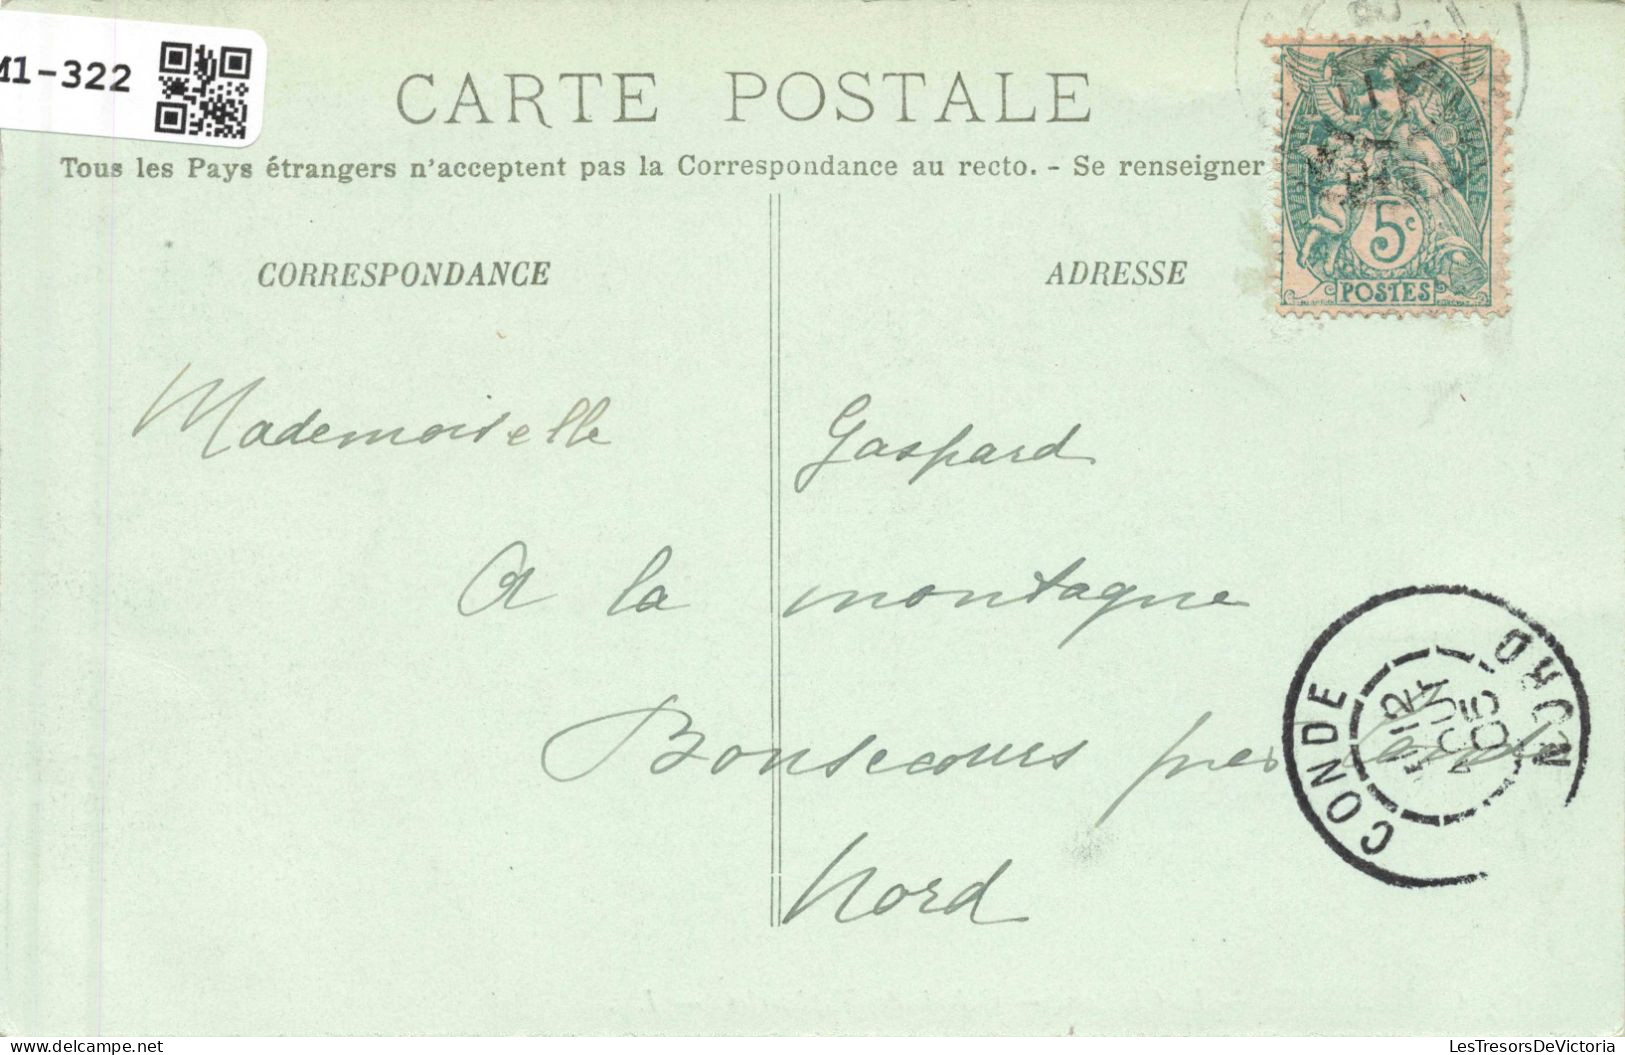 M1-322
CARTE POSTALE
Tous les Pays étrangers n'acceptent pas la Correspondance au recto. - Se renseigner
CORRESPONDANCE
ADRESSE
5c
POSTES
Mademoiselle Gaspard
A la montagne
Bonsecours près Condé
Nord
CONDE
NORD
12
05
LesTresorsDeVictoria
www.delcampe.net